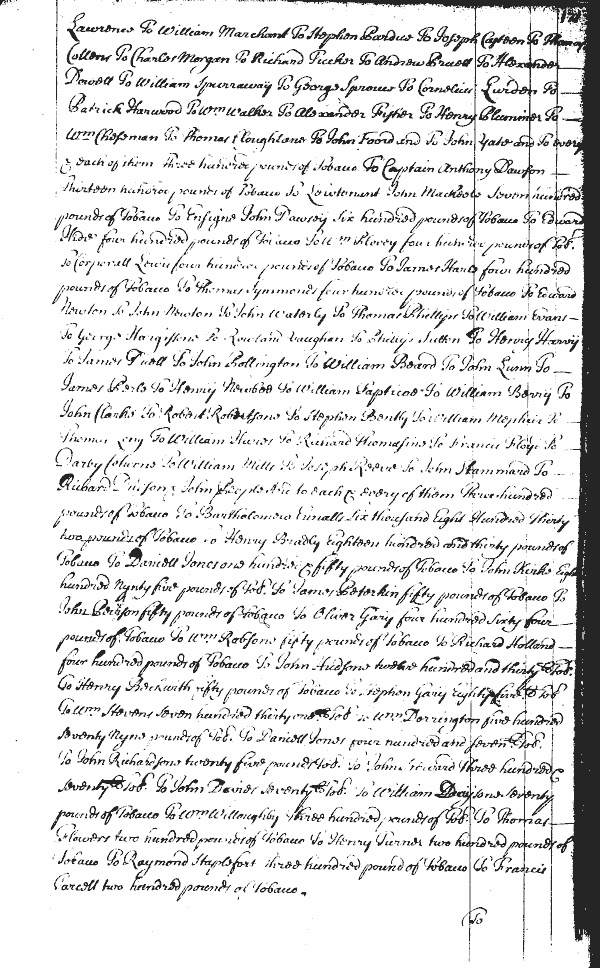 Lawrence To William Marchant To Stephen Pardue To Joseph Casteen To Thomas
Collens To Charles Morgan To Richard Tucker To Andrew Bruell To Alexander
Dowell To William Spurraway To George Sprouse To Cornelius Lurden To
Patrick Harwood To Wm Walker To Alexander Fisher To Henry Plummer To
Wm Cheseman To Thomas Coughlane To John Foord and To John Yate and To every
& each of them three hundred pounds of Tobacco To Captain Anthony Dawson
thirteen hundred pounds of Tobacco To Lieutenant John Mackeele Seven hundred
pounds of Tobacco To Ensigne John Dawsey Six hundred pounds of Tobacco To Edward
Hide four hundred pounds of Tobacco To Wm Storey four hundred pounds of Tob.
To Corporall Lewis four hundred pounds of Tobacco To James Hart four hundred
pounds of Tobacco To Thomas Symmonds four hundred pounds of Tobacco To Edward
Newton To John Newton To John Waterly To Thomas Phillips To William Evans
To George Hargissone To Rowland Vaughan To Phillip Sutton To Henry Harvy
To James Duell To John Pollington To William Beard To John Lunn To
James Perle To Henry Newbee To William Taptico To William Berry To
John Clarke To Robert Robertsone To Stephen Bently To William Mephair To
Thomas Long To William Hures To Richard Thomasine To Francis Floyd To
Darby Coturne To William Mills To Joseph Reeve To John Stannard To
Richard & John to each & every of them three hundred
pounds of Tobacco To Bartholomew Ennalls Six thousand Eight Hundred Thirty
two pounds of Tobacco To Henry Bradly Eighteen hundred and thirty pounds of
Tobacco To Daniell Jones one hundred & fifty pounds of Tobacco To John Kirke Eight
hundred Nynty five pounds of Tob. To James Peterkin fifty pounds of Tobacco To
John fifty pounds of Tobacco To Oliver Gary four hundred sixty four
pounds of Tobacco To Wm Robsone fifty pounds of Tobacco To Richard Holland
four hundred pounds of Tobacco To John Hudsone twelve hundred and thirty lb Tob.
To Henry Beckwith fifty pounds of Tobacco To Stephen Gary Eighty five lb Tob
To Wm Stevens seven hundred thirty one lb Tob. To Wm Dorrington five hundred
seventy Nyne pounds of Tob. To Daniell Jones four hundred and seven lb Tob.
To John Richardsone twenty five pounds of Tob. To John Steward three hundred &
seventy lb Tob. To John Davies seventy lb Tob. To William seventy
pounds of Tobacco To Wm Willoughby three hundred pounds of Tob. To Thomas
Flowers two hundred pounds of Tobacco To Henry Turner two hundred pounds of
Tobacco To Raymond Staplefort three hundred pound of Tobacco To Francis
Tarcell two hundred pounds of Tobacco.
To